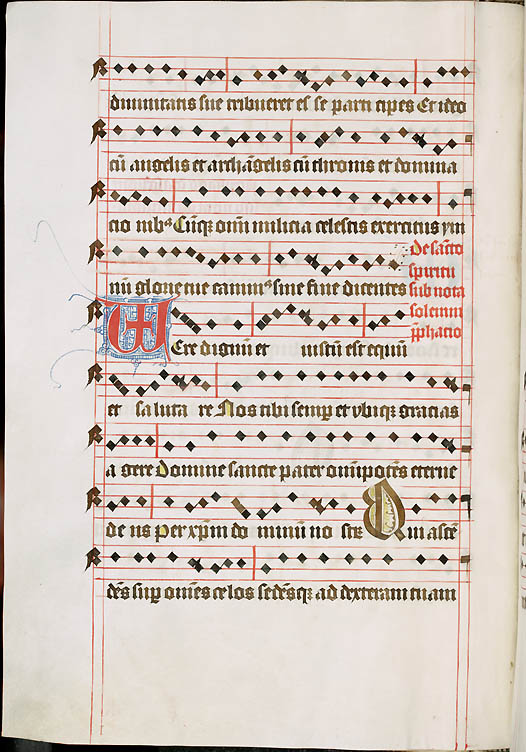 diuinitatis sue tribueret es se parti cipes Et ideo
cū angelis et archāgelis cū thronis et domina
cio nibꝰ Cūqꝫ omī milicia celestis exercitus ym
nū glorie tue canimꝰ sine fine dicentes
de sācto
spiritu
sub nota
solenni
p̄phacio
Vere dignū et iustū est equū
et saluta re Nos tibi semꝑ et vbiqꝫ gracias
a gere Domine sancte pater omīpotēs eterne
de us per xp̄m do minū no strū Qui ascē
dēs suꝑ omēs celos sedēsqꝫ ad dexteram tuam